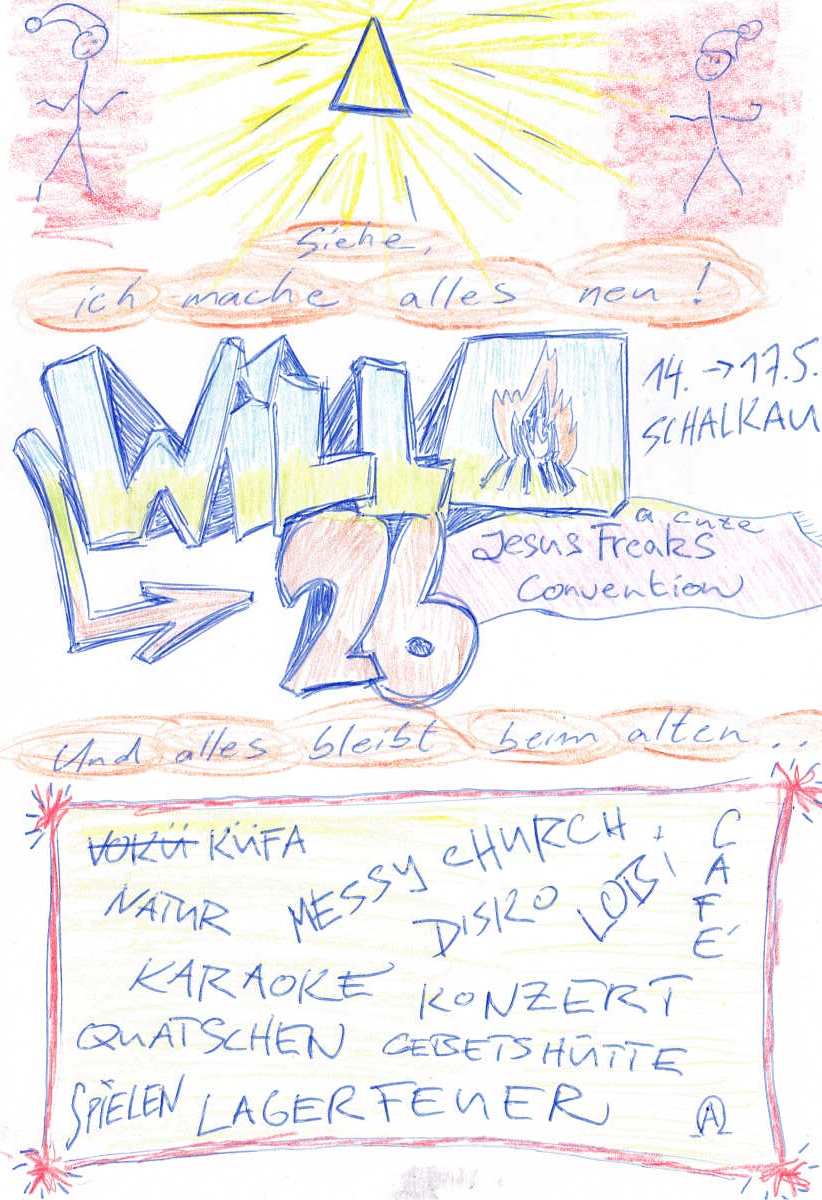 Siehe,
ich mache alles neu!
WILLO
26
14. → 17.5.
SCHALKAU
a cuze
Jesus Freaks
Convention
Und alles bleibt beim alten...
VOKÜ KÜFA
MESSY CHURCH
CAFÉ
NATUR
DISKO
LOBI
KARAOKE
KONZERT
QUATSCHEN
GEBETSHÜTTE
SPIELEN
LAGERFEUER